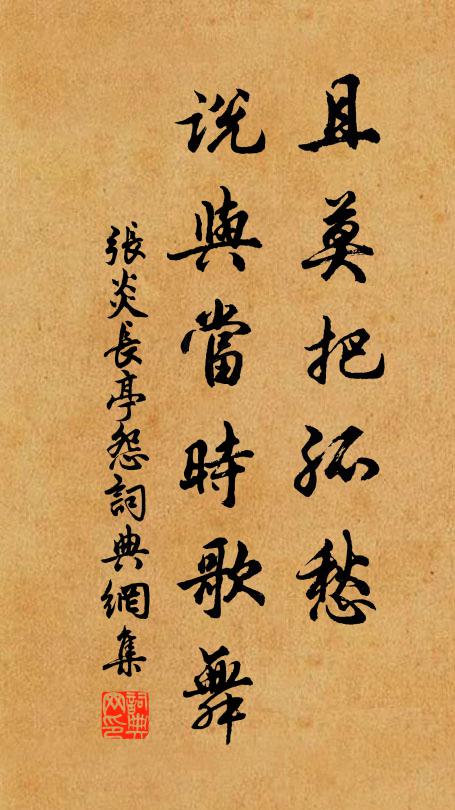 且莫把孤愁
說與當時歌舞
張炎長亭怨詞典網集
詞典網印